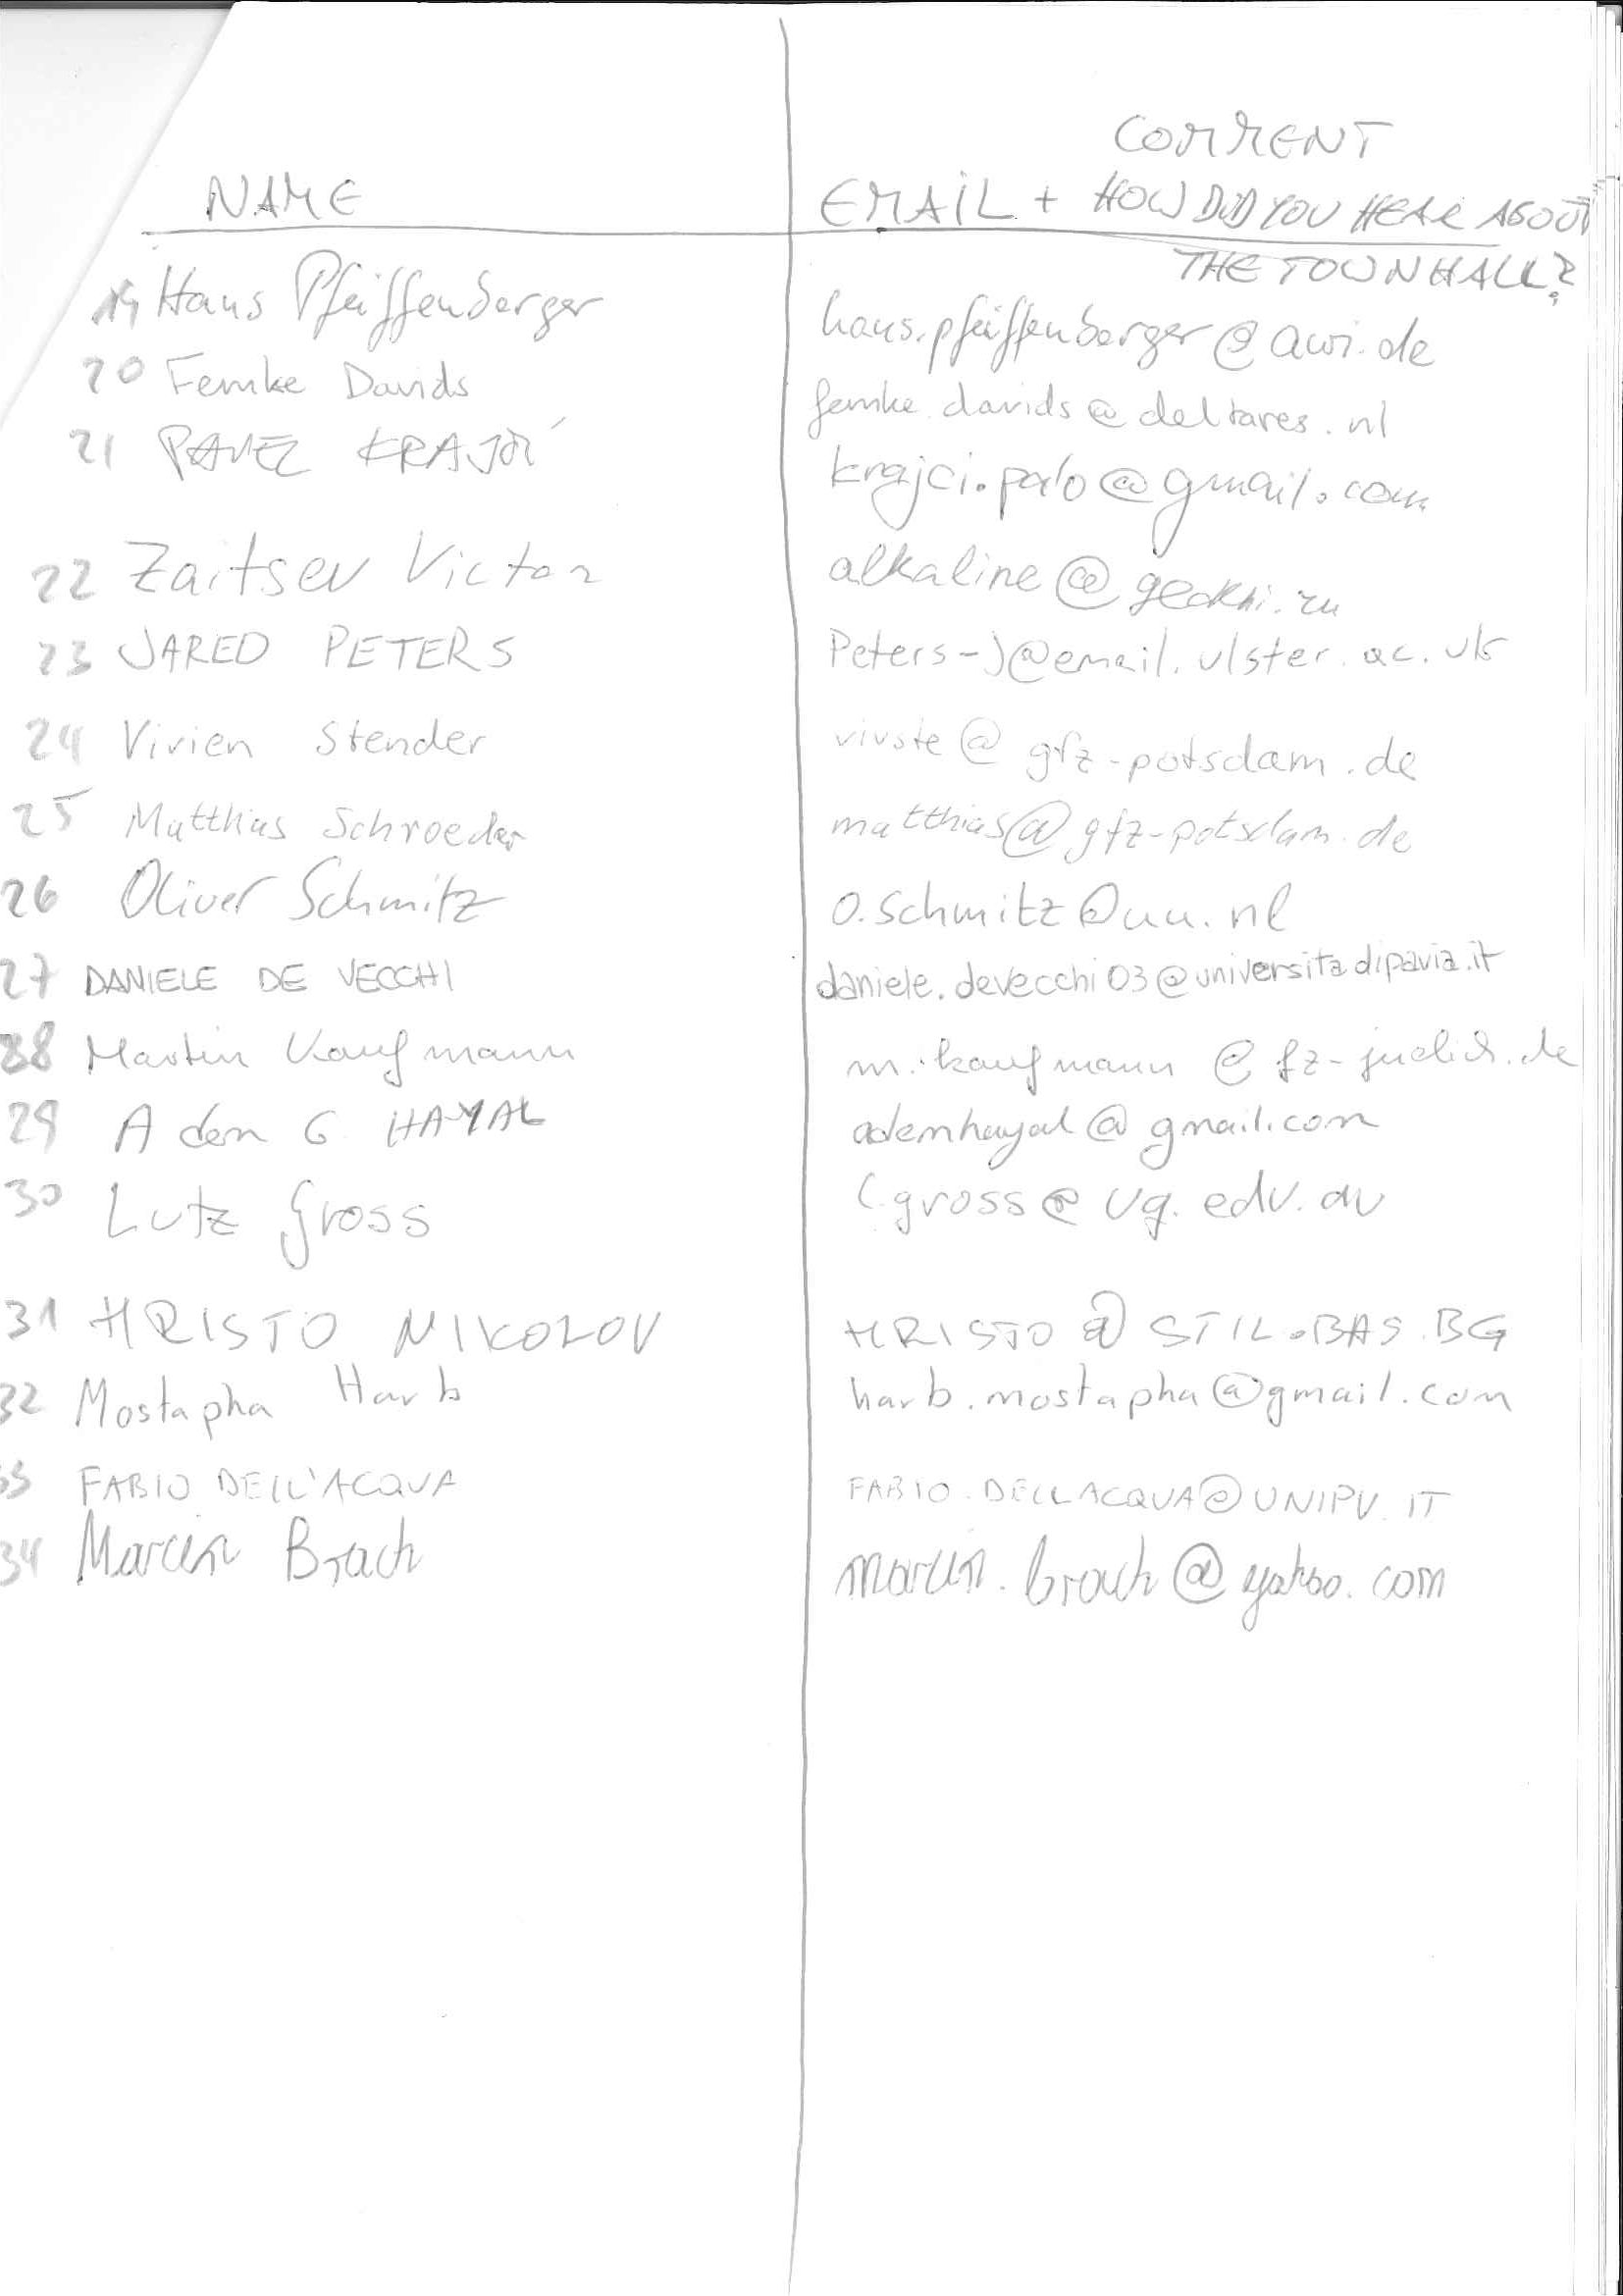 COMMENT
NAME EMAIL + HOW DID YOU HEAR ABOUT
THE TOWNHALL?
19 Hans Pfeiffenberger hans.pfeiffenberger@awi.de
20 Femke Davids femke.davids@deltares.nl
21 PAVEL krajci.palo@gmail.com
22 Zaitsev Victor alkaline@geokhi.ru
23 JARED PETERS Peters-J@email.ulster.ac.uk
24 Vivien Stender vivste@gfz-potsdam.de
25 Matthias Schroeder matthias@gfz-potsdam.de
26 Oliver Schmitz o.schmitz@uu.nl
27 DANIELE DE VECCHI daniele.devecchi03@universitadipavia.it
28 Martin Kaufmann m.kaufmann@fz-juelich.de
29 Adem G HAYAL ademhayal@gmail.com
30 Lutz Gross l.gross@uq.edu.au
31 HRISTO NIKOLOV HRISTO@STIL.BAS.BG
32 Mostapha Harb harb.mostapha@gmail.com
33 FABIO DELL'ACQUA FABIO.DELLACQUA@UNIPV.IT
34 Marcin Brach marcin.brach@yahoo.com